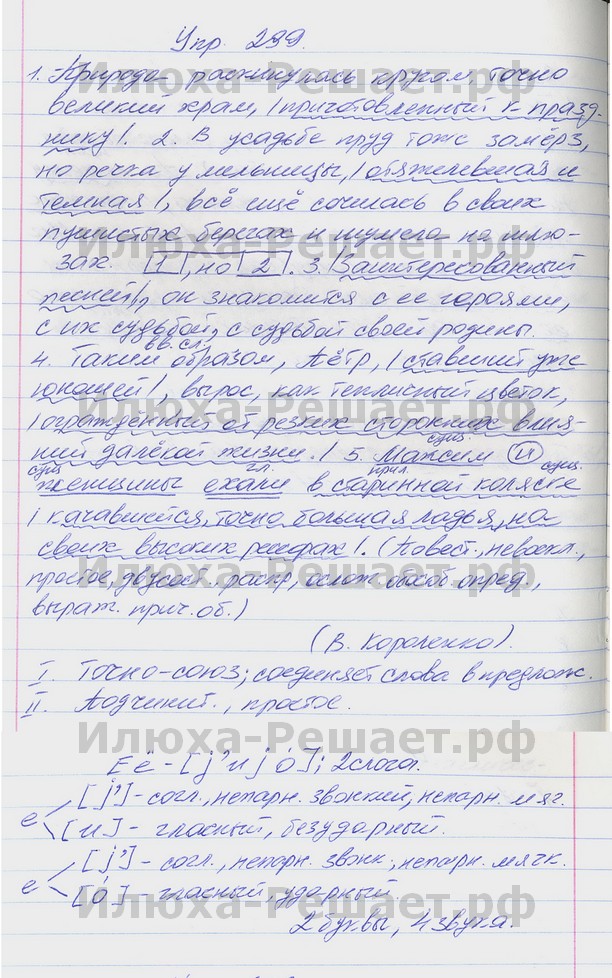 Упр. 299.
1. Природа раскинулась кругом, точно
великий храм, |приготовленный к празд-
нику|. 2. В усадьбе пруд тоже замёрз,
но речка у мельницы, |отяжелевшая и
темная|, всё ещё сочилась в своих
пушистых берегах и шумела на шлю-
зах. [1], но [2]. 3. |Заинтересованный
песней|, он знакомится с ее героями,
с их судьбой, с судьбой своей родины.
вв. сл.
4. Таким образом, Пётр, |ставший уже
юношей|, вырос, как тепличный цветок,
|ограждённый от резких сторонних влия-
ний далёкой жизни.| 5. Максим и
сущ.
сущ. гл. прил. сущ.
женщины ехали в старинной коляске
|качавшейся, точно большая ладья, на
своих высоких рессорах|. (Повест., невоскл.,
простое, двусост., распр., ослож. обособ. опред.,
выраж. прич. об.)
(В. Короленко).
I. Точно-союз; соединяет слова в предлож.
II. Подчинит., простое.
Её - [j'иj'о́]; 2 слога.
е [j'] - согл., непарн. звонкий, непарн. мяг.
[и] - гласный, безударный.
ё [j'] - согл., непарн. звонк., непарн. мягк.
[о́] - гласный, ударный.
2 буквы, 4 звука.
Илюха-Решает.рф
Илюха-Решает.рф
Илюха-Решает.рф
Илюха-Решает.рф
Илюха-Решает.рф
Илюха-Решает.рф